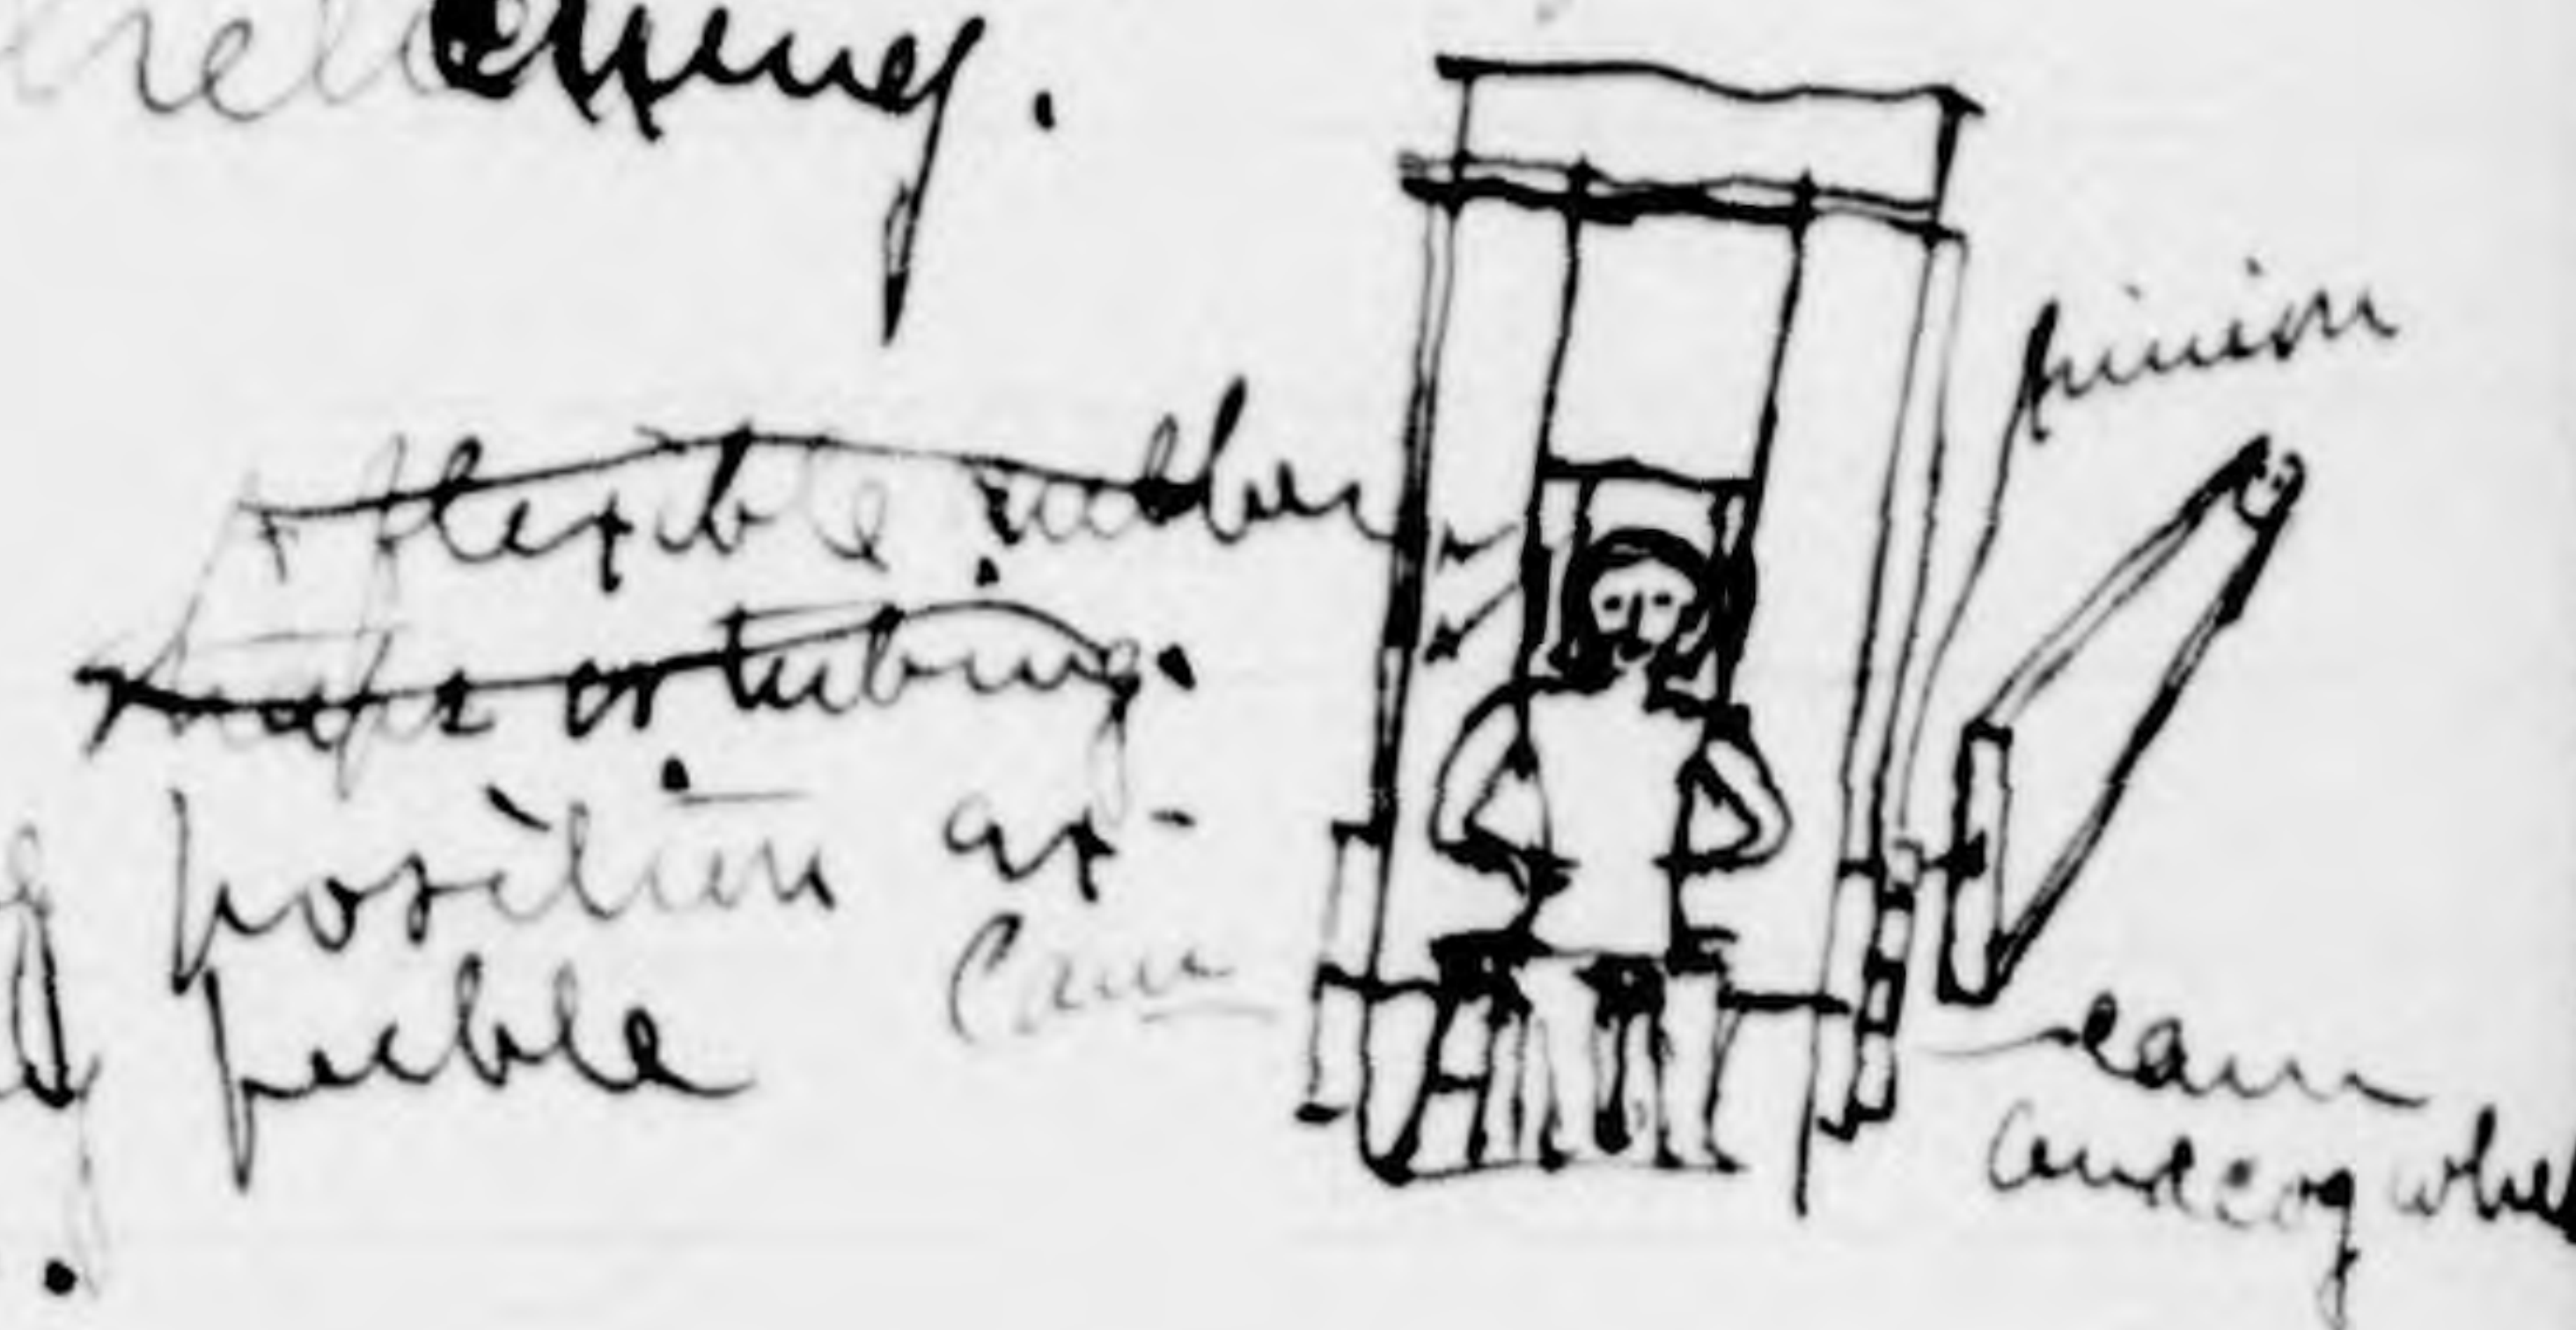 flexible rubber
straps or tubing.
position as-
feeble
Cam
pinion
cam
and cog whe